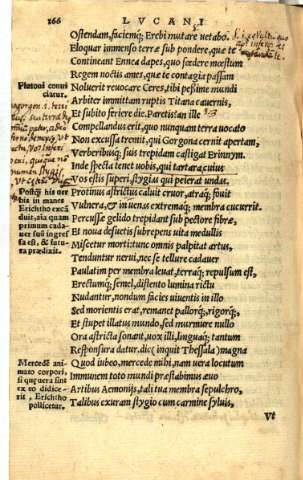 166 LVCANI
Ostendam, faciemq; Erebi mutare uetabo.
Eloquar immenso terræ sub pondere, quæ te
Contineant Ennea dapes, quo fœdere mœstum
Regem noctis ames, quæ te contagia passam
Noluerit reuocare Ceres, tibi pessime mundi
Arbiter immittam ruptis Titana cauernis,
Et subito feriere die. Paretis? an ille
Compellandus erit, quo nunquam terra uocato
Non excussa tremit, qui Gorgona cernit apertam,
Verberibusq; suis trepidam castigat Erinnym.
Inde specta tenet uobis, qui tartara cuius
Vos estis superi, stygias qui peierat undas.
Protinus astrictus caluit cruor, atraq; fouit
Vulnera, & in uenas extremaq; membra cucurrit.
Percussæ gelido trepidant sub pectore fibræ,
Et noua desuetis subrepens uita medullis
Miscetur morti: tunc omnis palpitat artus,
Tenduntur nerui, nec se tellure cadauer
Paulatim per membra leuat, terraq; repulsum est,
Erectumq; semel, distento lumina rictu
Nudantur, nondum facies uiuentis in illo
Sed morientis erat, remanet pallorq;, rigorq;,
Et stupet illatus mundo, sed murmure nullo
Ora astricta sonant, uox illi, linguaq; tantum
Responsura datur. dic (inquit Thessala) magna
Quod iubeo, mercede mihi, nam uera locutum
Immunem toto mundi præstabimus æuo
Artibus Aemoniis, tali tua membra sepulchro,
Talibus exuram stygio cum carmine syluis,
Vt
Plutoni conui
ciatur.
Posth; hic uer
bis in manes
Erichtho exca
duit, aia quam
primum cada
uer suū ingres
sa est, & futu
ra prædixit.
Mercedē ani
mato corpori,
si quæ uera sint
ex eo didice
rit, Erichtho
pollicetur.